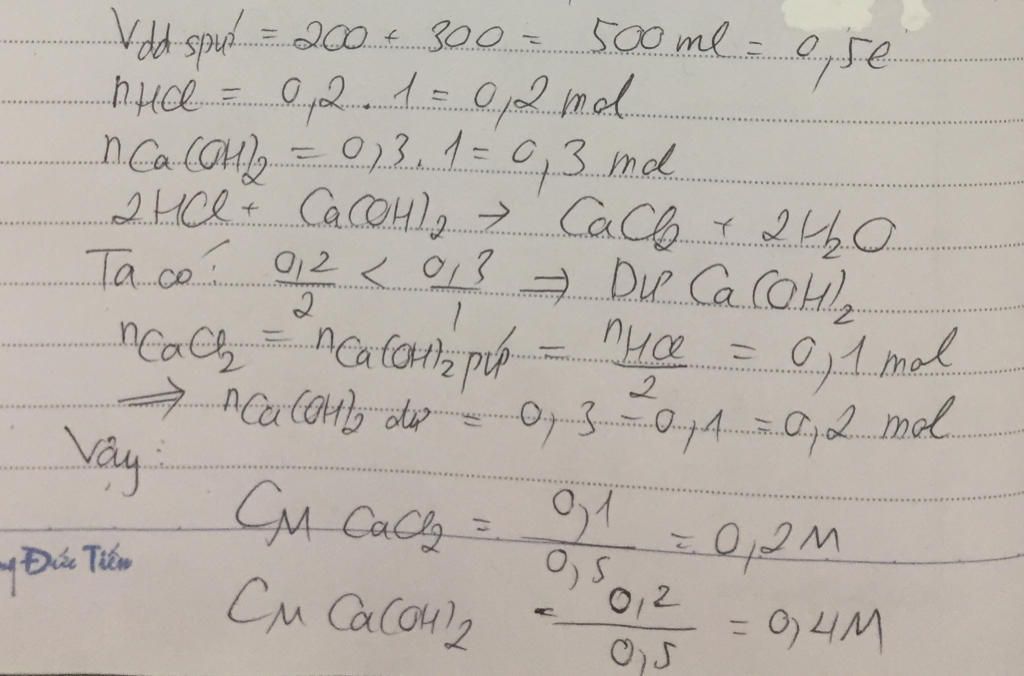 Vdd spứ = 200 + 300 = 500 ml = 0,5l
nHCl = 0,2 . 1 = 0,2 mol
nCa(OH)2 = 0,3 . 1 = 0,3 mol
2HCl + Ca(OH)2 → CaCl2 + 2H2O
Ta có: 0,2/2 < 0,3/1 ⇒ Dư Ca(OH)2
nCaCl2 = nCa(OH)2 pứ = nHCl/2 = 0,1 mol
⇒ nCa(OH)2 dư = 0,3 - 0,1 = 0,2 mol
Vậy:
CM CaCl2 = 0,1/0,5 = 0,2M
Đức Tiến
CM Ca(OH)2 = 0,2/0,5 = 0,4M